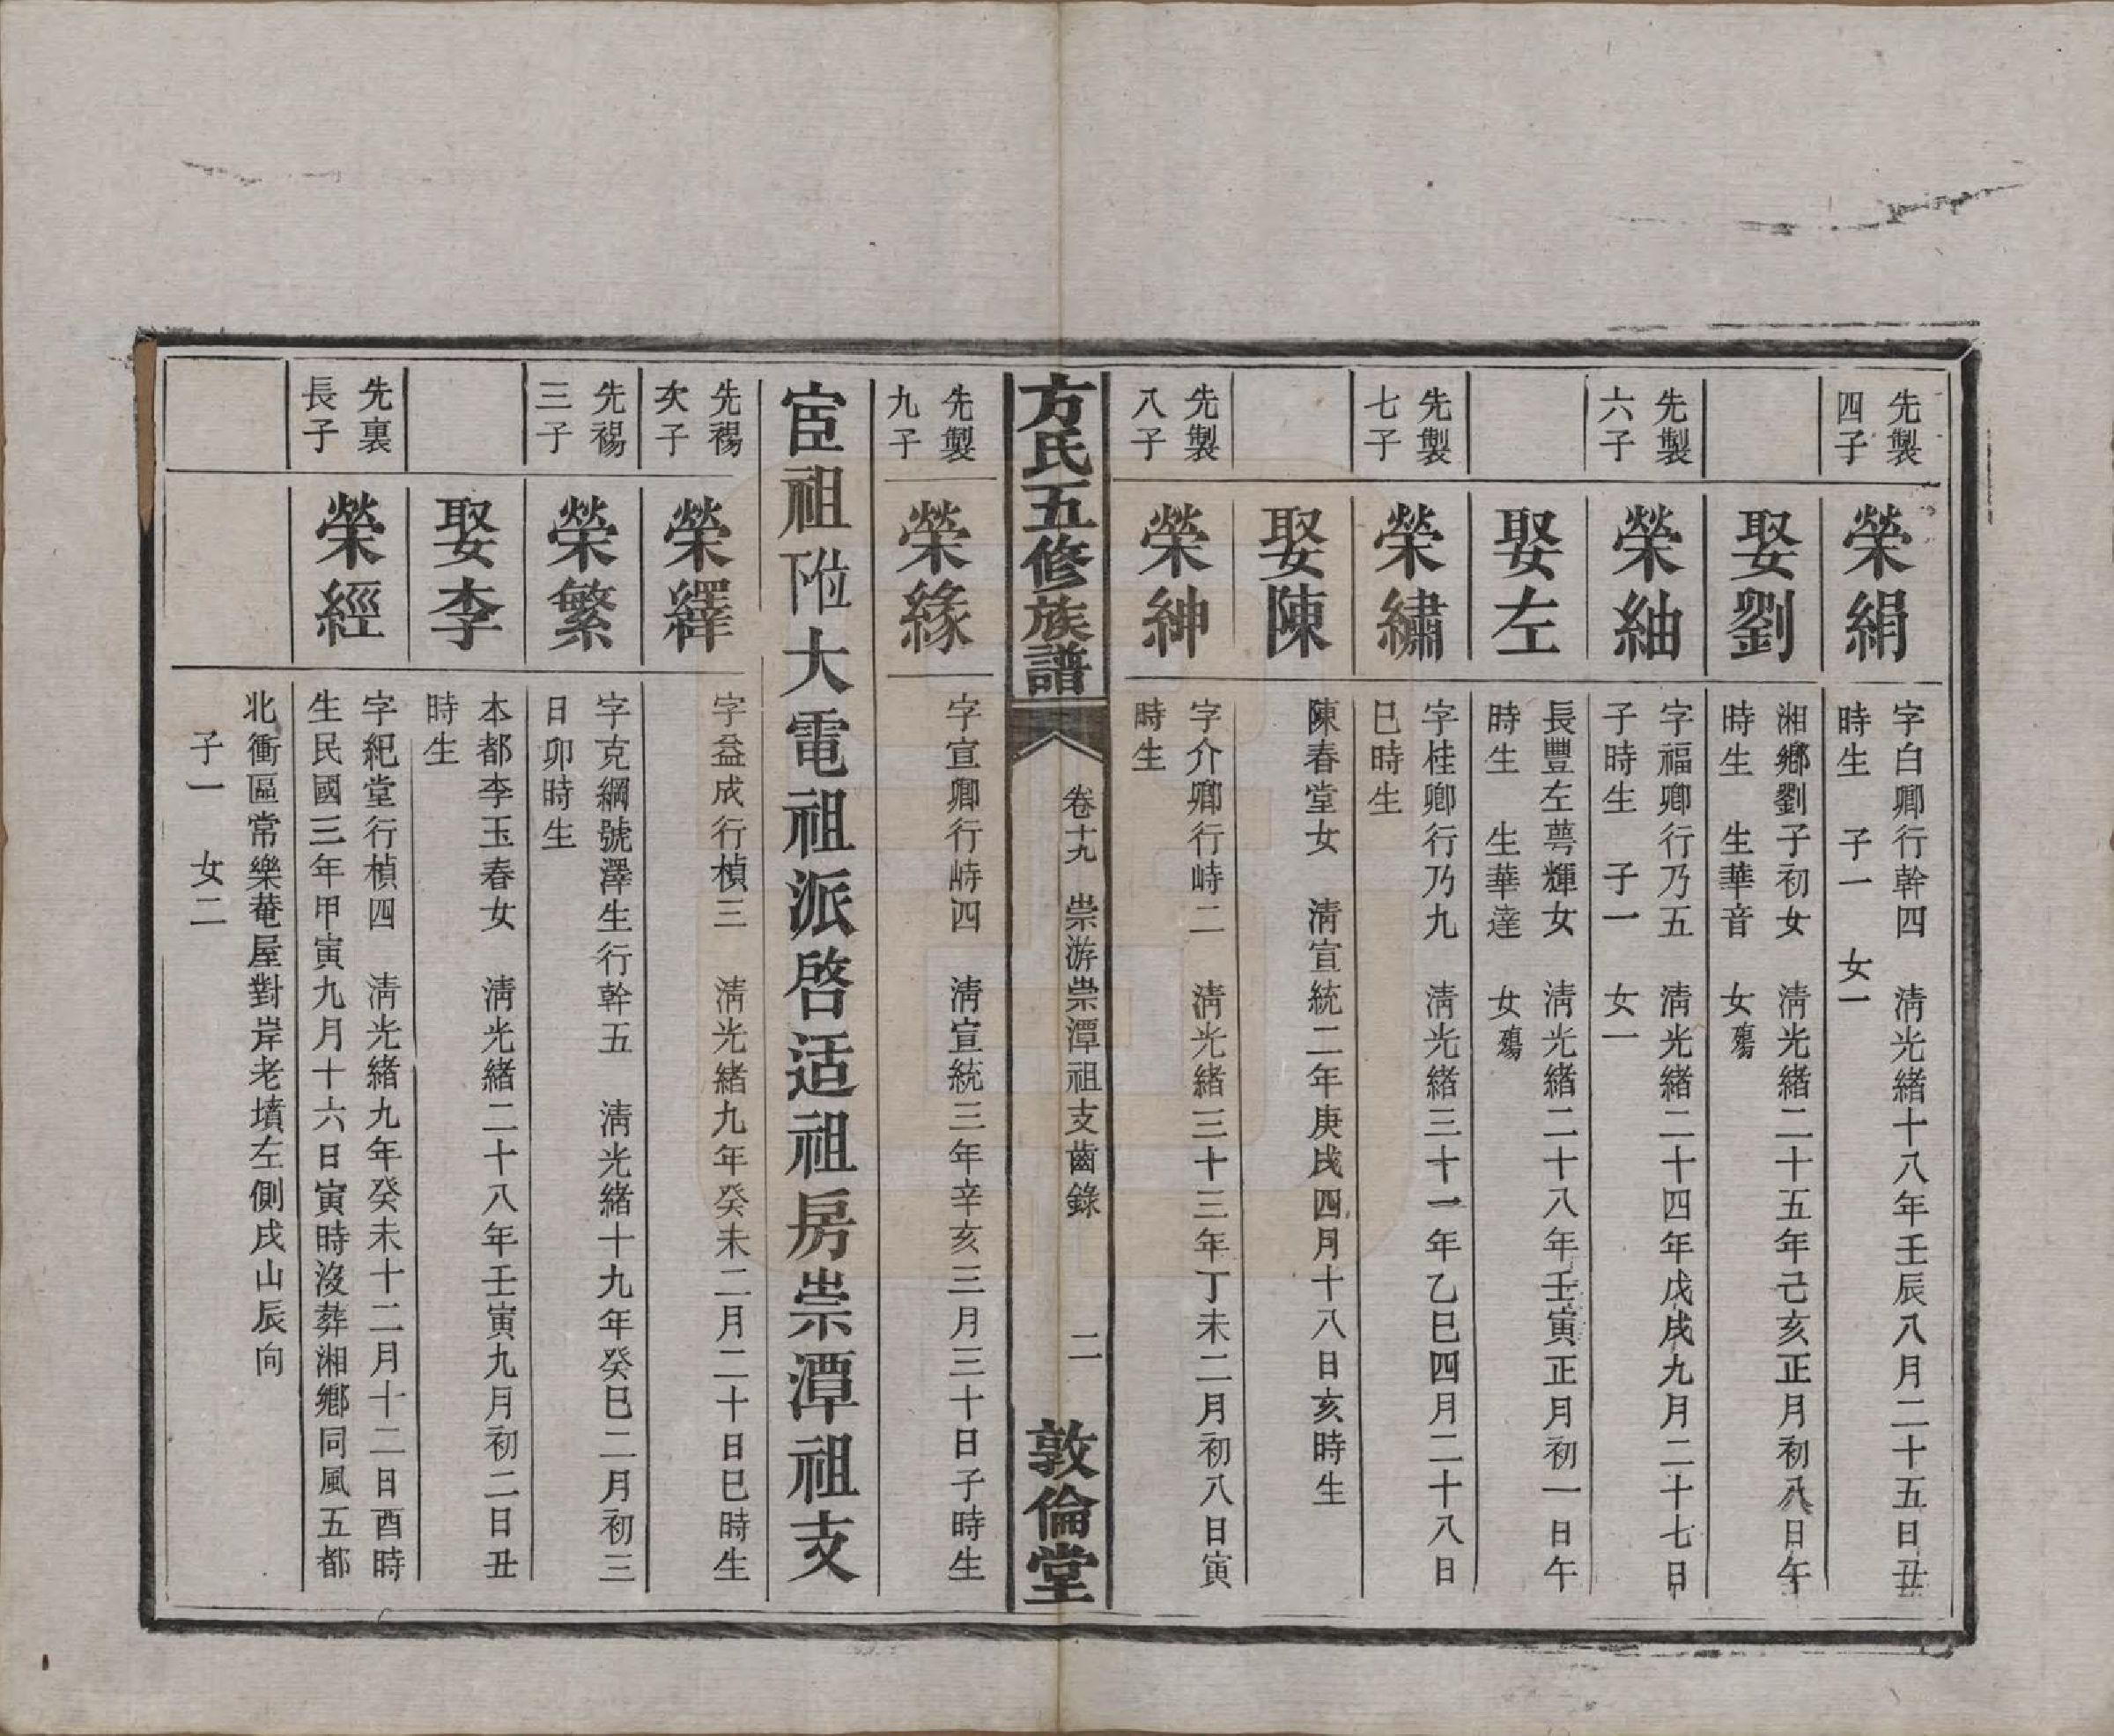 先製
四子
榮絹
字白卿行幹四　淸光緒十八年壬辰八月二十五日丑
時生　子一　女一
娶劉
湘鄉劉子初女　淸光緒二十五年己亥正月初八日午
時生　生華音　女殤
先製
六子
榮紬
字福卿行乃五　淸光緒二十四年戊戌九月二十七日
子時生　子一　女一
娶左
長豐左蕚輝女　淸光緒二十八年壬寅正月初一日午
時生　生華達　女殤
先製
七子
榮繡
字桂卿行乃九　淸光緒三十一年乙巳四月二十八日
巳時生
娶陳
陳春堂女　淸宣統二年庚戌四月十八日亥時生
先製
八子
榮紳
字介卿行峙二　淸光緒三十三年丁未二月初八日寅
時生
方氏五修族譜
卷十九　崇游崇潭祖支齒錄　二
敦倫堂
先製
九子
榮緣
字宣卿行峙四　淸宣統三年辛亥三月三十日子時生
宦祖附大電祖派啓适祖房崇潭祖支
先禓
次子
榮繹
字益成行楨三　淸光緒九年癸未二月二十日巳時生
先禓
三子
榮繁
字克綱號澤生行幹五　淸光緒十九年癸巳二月初三
日卯時生
娶李
本都李玉春女　淸光緒二十八年壬寅九月初二日丑
時生
先裏
長子
榮經
字紀堂行楨四　淸光緒九年癸未十二月十二日酉時
生民國三年甲寅九月十六日寅時沒葬湘鄉同風五都
北衝區常樂菴屋對岸老墳左側戌山辰向
子一　女二